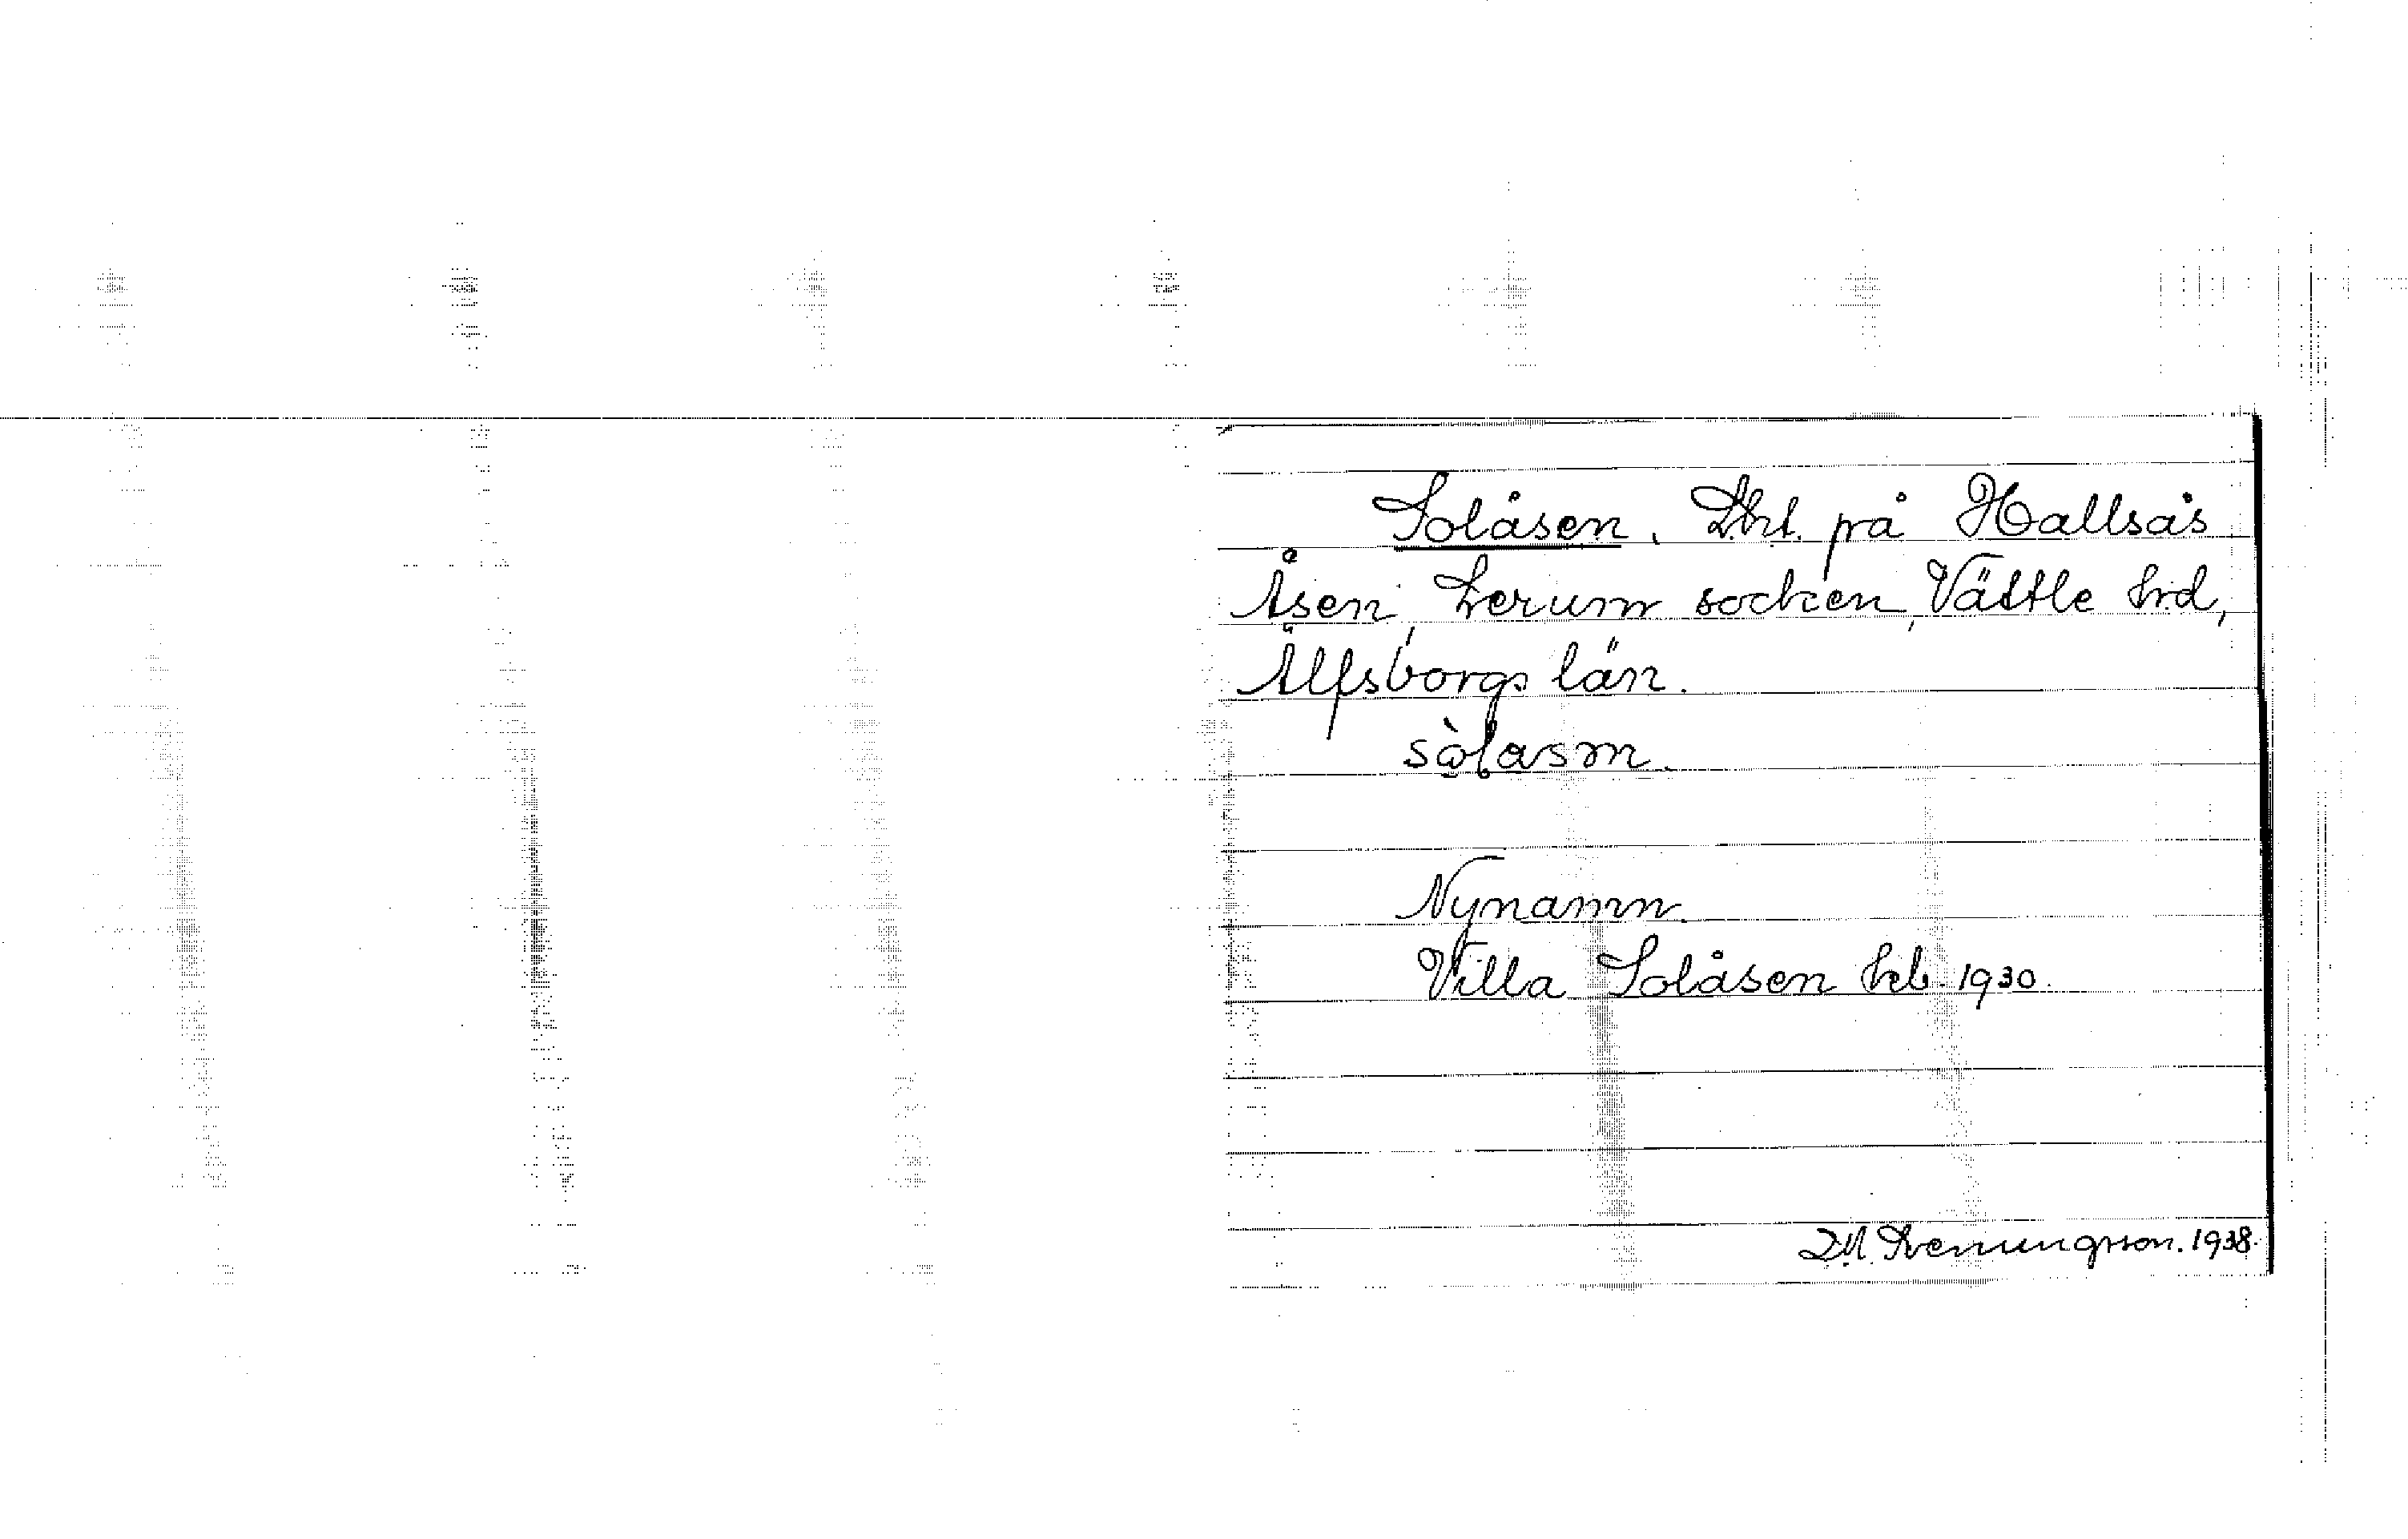 Solåsen. Lht. på Hallsås
Åsen, Lerum socken, Vättle hd,
Älfsborgs län.
sòlasn.
Nynamn.
Villa Solåsen hlb. 1930.
1938.